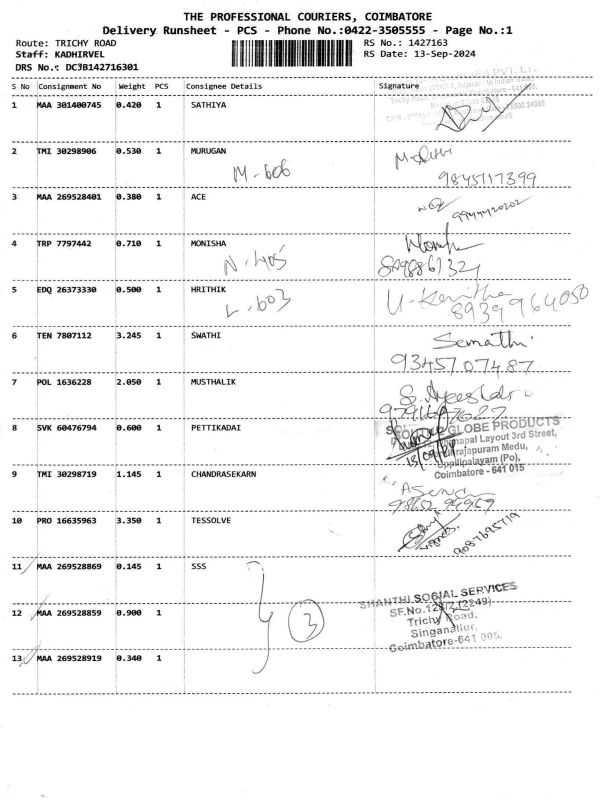 THE PROFESSIONAL COURIERS, COIMBATORE
Delivery Runsheet - PCS - Phone No.:0422-3505555 - Page No.:1
Route: TRICHY ROAD
RS No.: 1427163
Staff: KADHIRVEL
RS Date: 13-Sep-2024
DRS No.: DCJB142716301
S No Consignment No Weight PCS Consignee Details Signature
1 MAA 301400745 0.420 1 SATHIYA
2 TMI 30298906 0.530 1 MURUGAN
M-606
9845117399
3 MAA 269528401 0.380 1 ACE
9944420202
4 TRP 7797442 0.710 1 MONISHA
N-405
5 EDQ 26373330 0.500 1 HRITHIK
L-603
U-Kavitha
8939964050
6 TEN 7807112 3.245 1 SWATHI
Semathi
9345707487
7 POL 1636228 2.050 1 MUSTHALIK
8 SVK 60476794 0.600 1 PETTIKADAI
GLOBE PRODUCTS
Layout 3rd Street,
Medu,
Uppilipalayam (Po),
Coimbatore - 641 015
9 TMI 30298719 1.145 1 CHANDRASEKARN
10 PRO 16635963 3.350 1 TESSOLVE
9087695719
11 MAA 269528869 0.145 1 SSS
12 MAA 269528859 0.900 1
3
SHANTHI SOCIAL SERVICES
Trichy Road,
Singanallur,
Coimbatore-641 005.
13 MAA 269528919 0.340 1